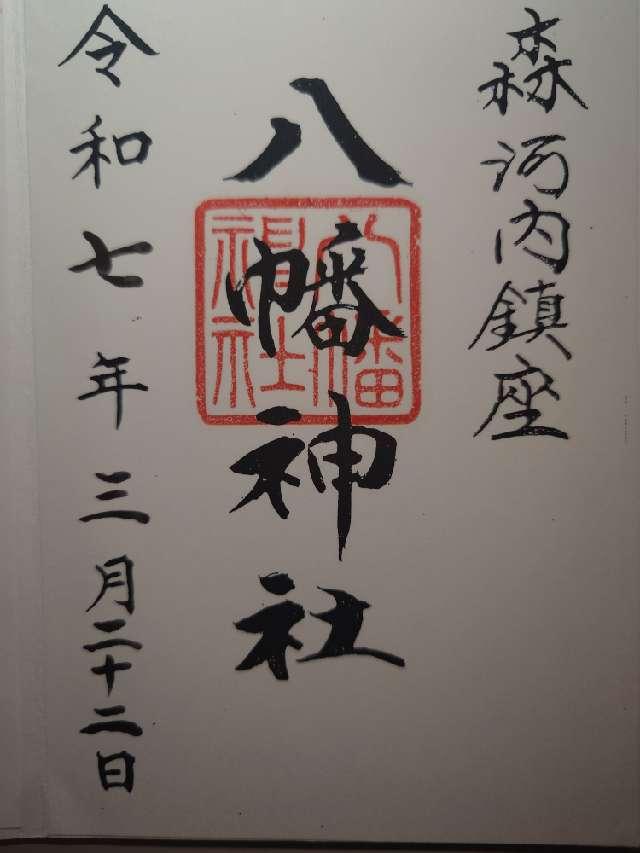 森河内鎮座
八幡神社
八幡神社
令和七年三月二十二日